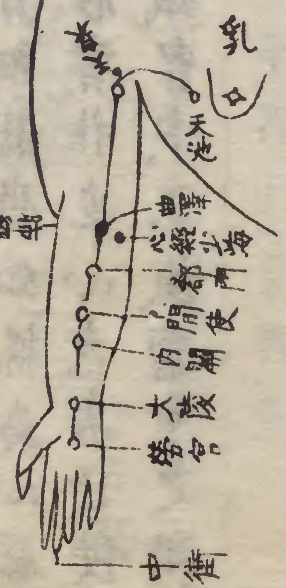 乳
天池
曲澤
心經少海
郄門
間使
内關
大陵
勞宮
中衝